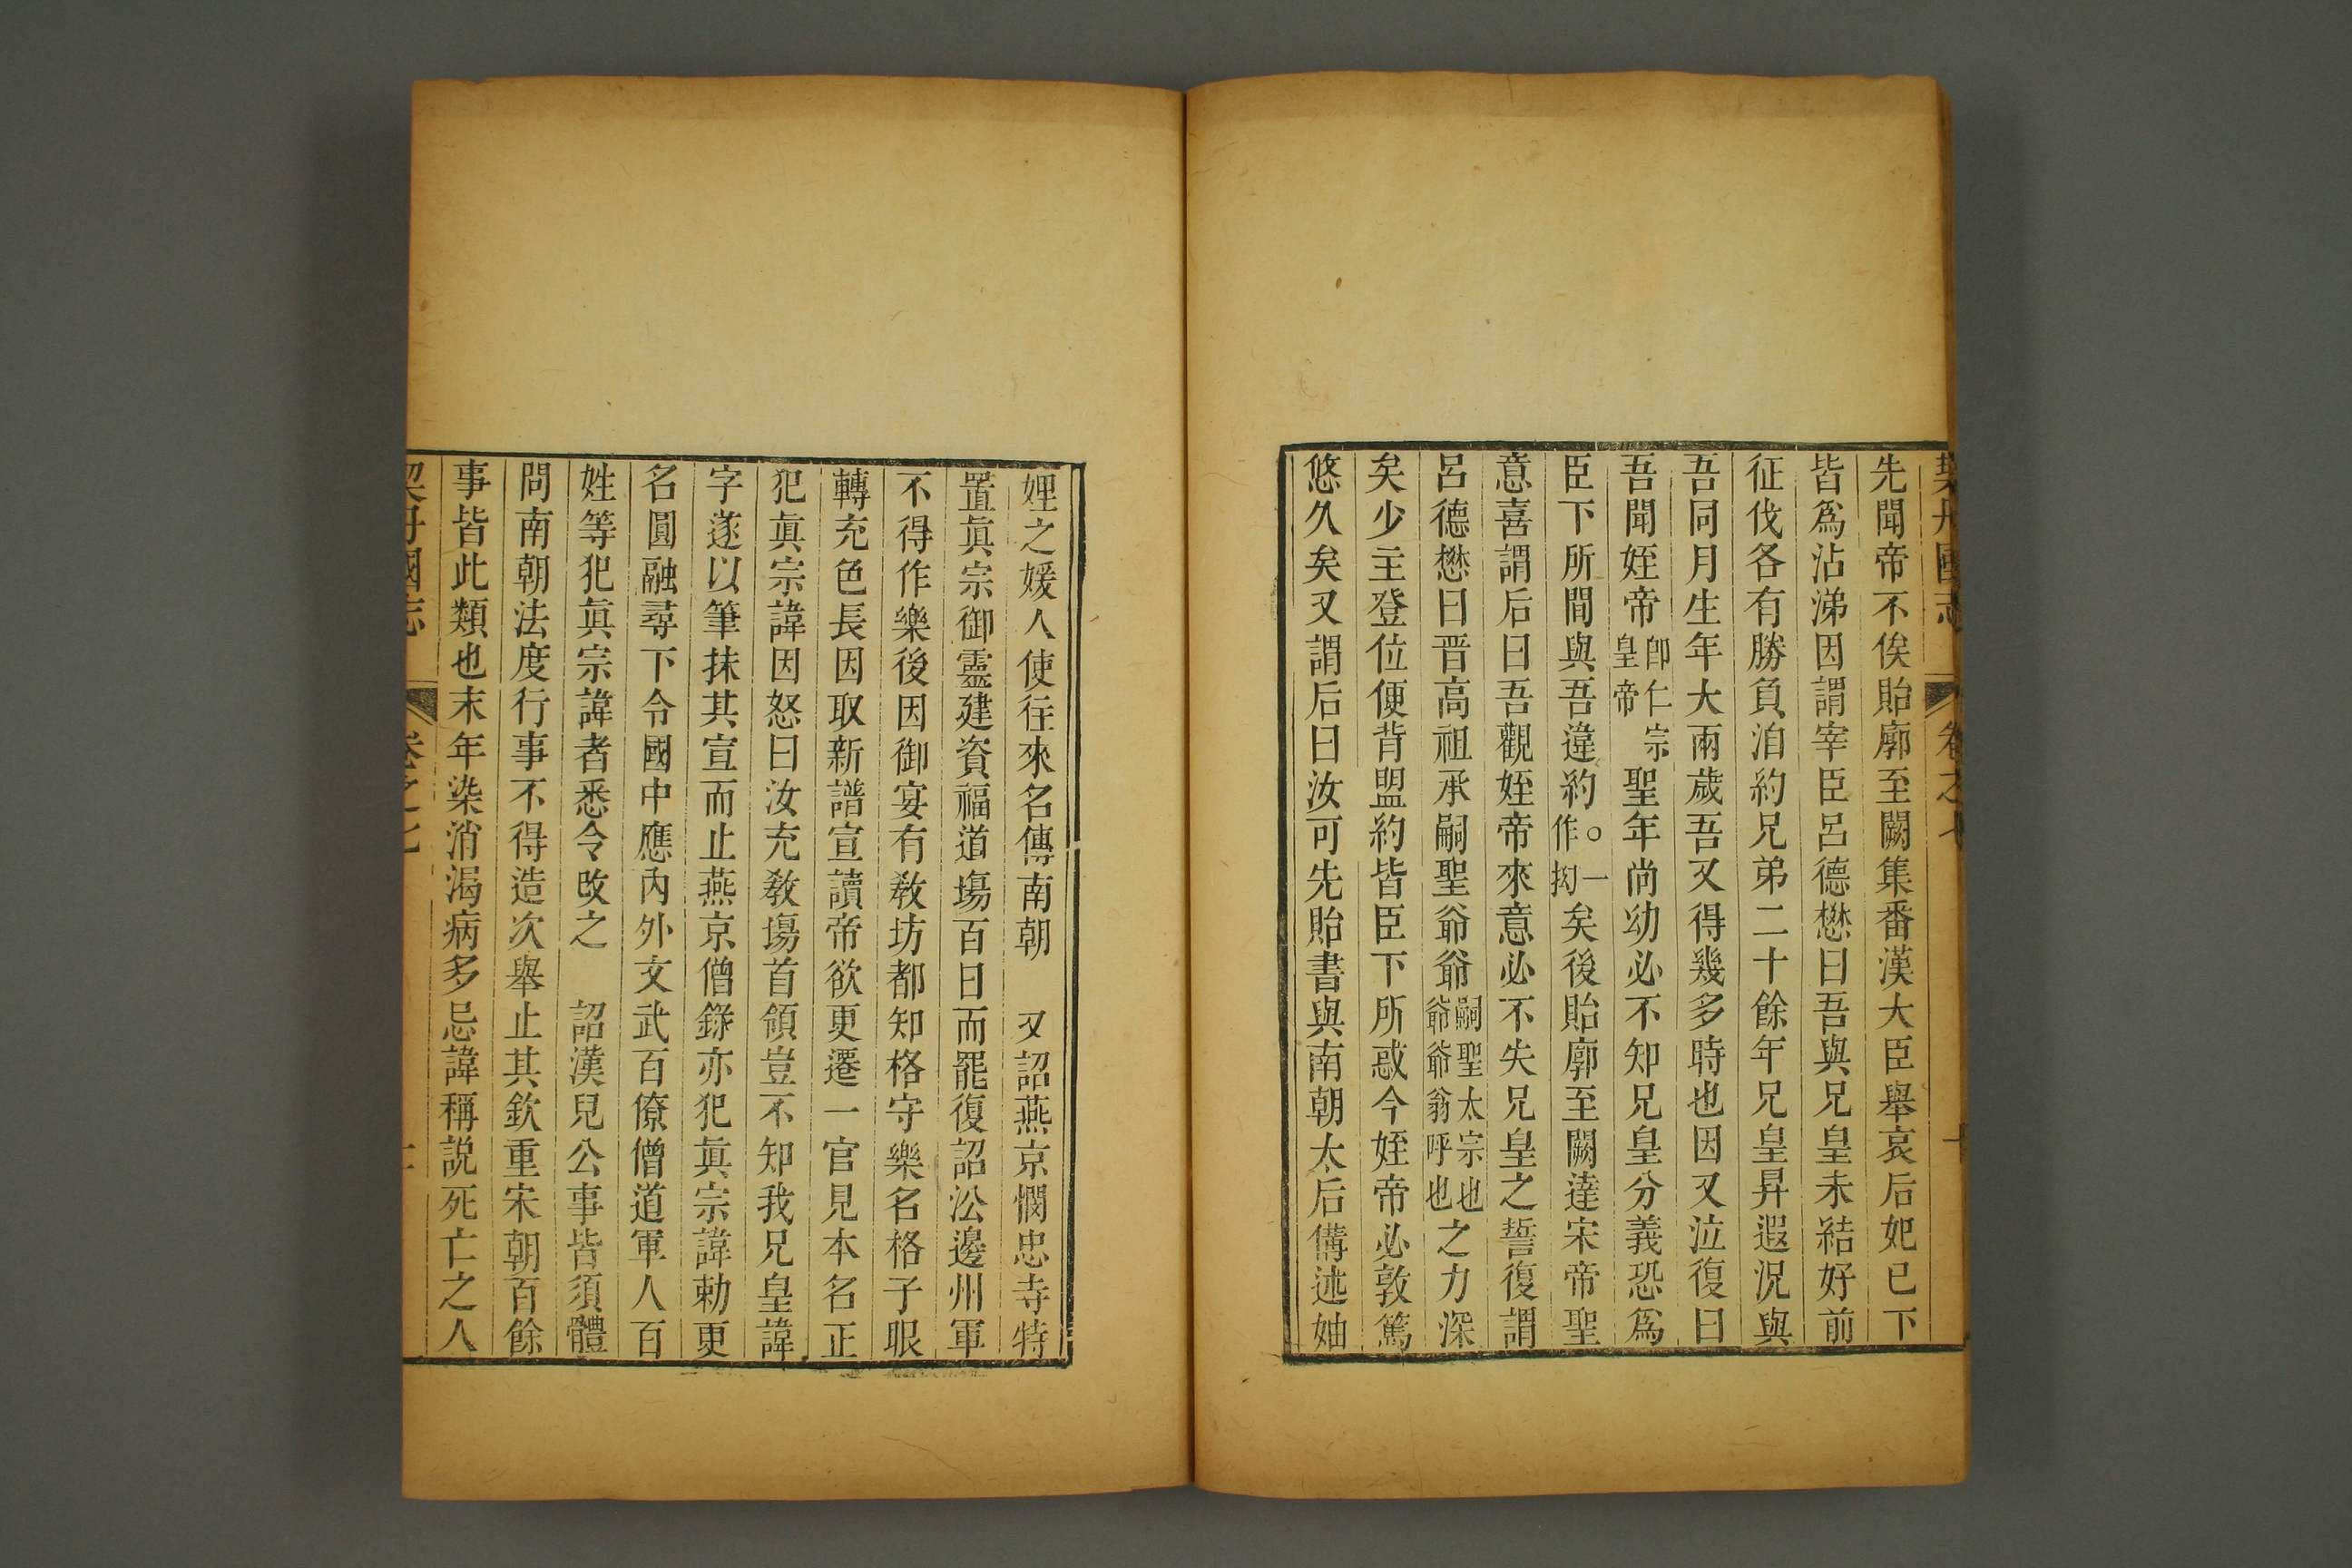 契丹國志 卷之七 十
先聞帝不俟貽廓至闕集番漢大臣舉哀后妃已下
皆爲沾涕因謂宰臣呂德懋曰吾與兄皇未結好前
征伐各有勝負洎約兄弟二十餘年兄皇昇遐況與
吾同月生年大兩歲吾又得幾多時也因又泣復曰
吾聞姪帝卽仁宗皇帝聖年尚幼必不知兄皇分義恐爲
臣下所間與吾違約○一作拗矣後貽廓至闕達宋帝聖
意喜謂后曰吾觀姪帝來意必不失兄皇之誓復謂
呂德懋曰晋高祖承嗣聖爺爺嗣聖太宗也爺爺翁呼也之力深
矣少主登位便背盟約皆臣下所惑今姪帝必敦篤
悠久矣又謂后曰汝可先貽書與南朝太后備述妯
娌之媛人使往來名傳南朝　又詔燕京憫忠寺特
置眞宗御靈建資福道塲百日而罷復詔沿邊州軍
不得作樂後因御宴有敎坊都知格守樂名格子眼
轉充色長因取新譜宣讀帝欲更遷一官見本名正
犯眞宗諱因怒曰汝充敎塲首領豈不知我兄皇諱
字遂以筆抹其宣而止燕京僧錄亦犯眞宗諱勅更
名圓融尋下令國中應內外文武百僚僧道軍人百
姓等犯眞宗諱者悉令改之　詔漢兒公事皆須體
問南朝法度行事不得造次舉止其欽重宋朝百餘
事皆此類也末年染消渴病多忌諱稱説死亡之人
契丹國志 卷之七